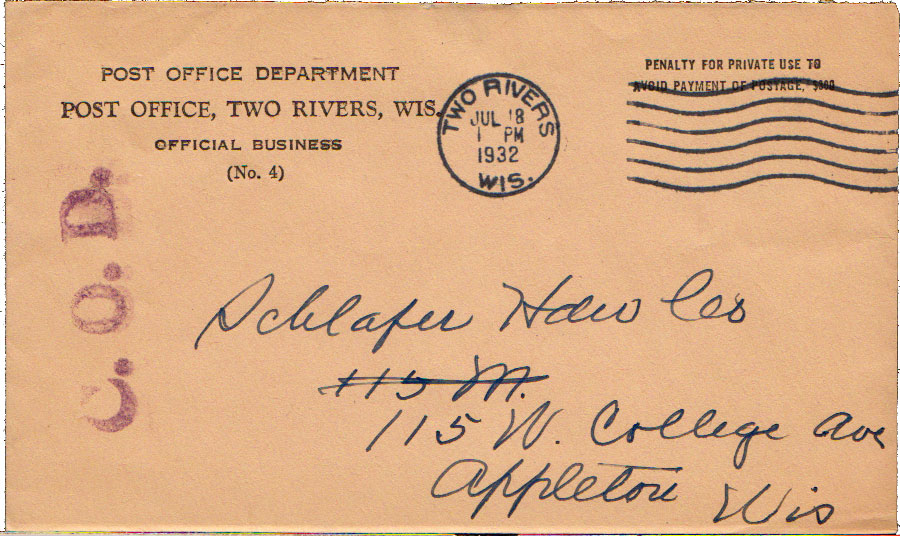 POST OFFICE DEPARTMENT
POST OFFICE, TWO RIVERS, WIS.
OFFICIAL BUSINESS
(No. 4)
TWO RIVERS
JUL 18
1 PM
1932
WIS.
PENALTY FOR PRIVATE USE TO
AVOID PAYMENT OF POSTAGE, $300
C. O. D.
Schlafer Hdw Co
115 M.
115 W. College Ave
Appleton Wis